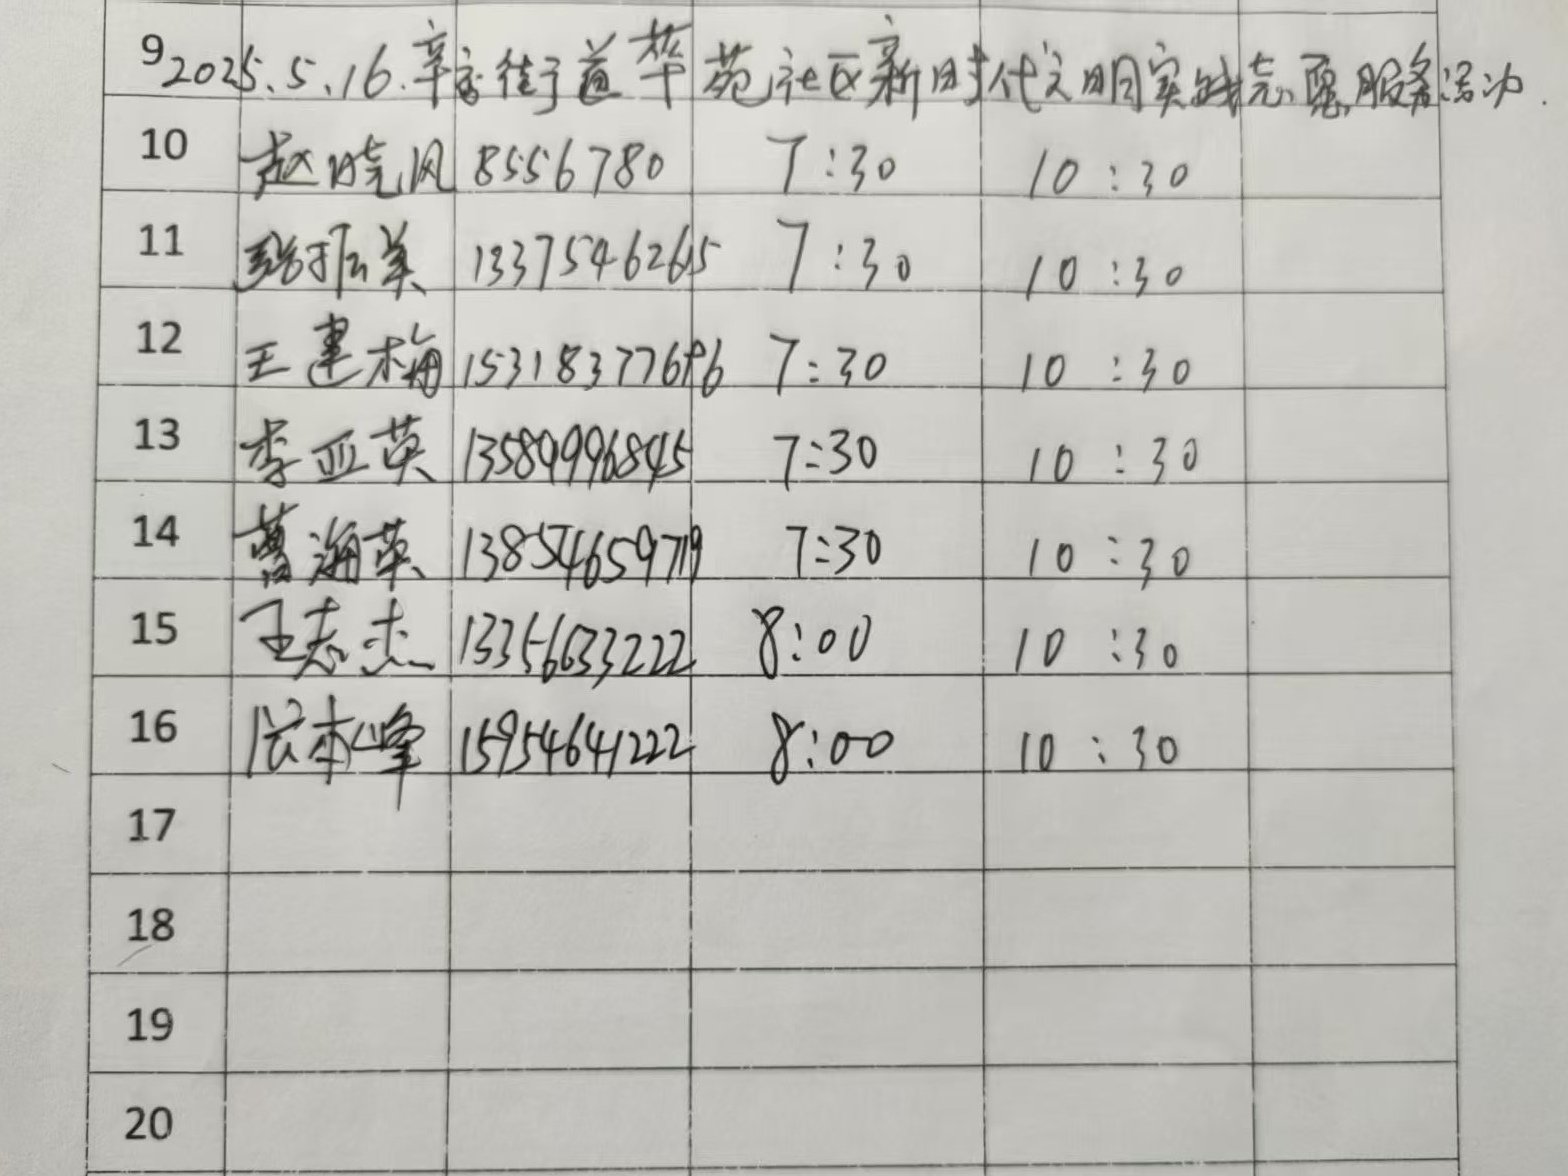 9 2025.5.16.辛店街道莘苑社区新时代文明实践志愿服务活动.
10 赵晓风 8556780 7:30 10:30
11 张振英 13375462615 7:30 10:30
12 王建梅 7:30 10:30
13 李亚英 13589996845 7:30 10:30
14 葛海英 13854659719 7:30 10:30
15 王志杰 13356633222 8:00 10:30
16 本峰 15954641222 8:00 10:30
17
18
19
20